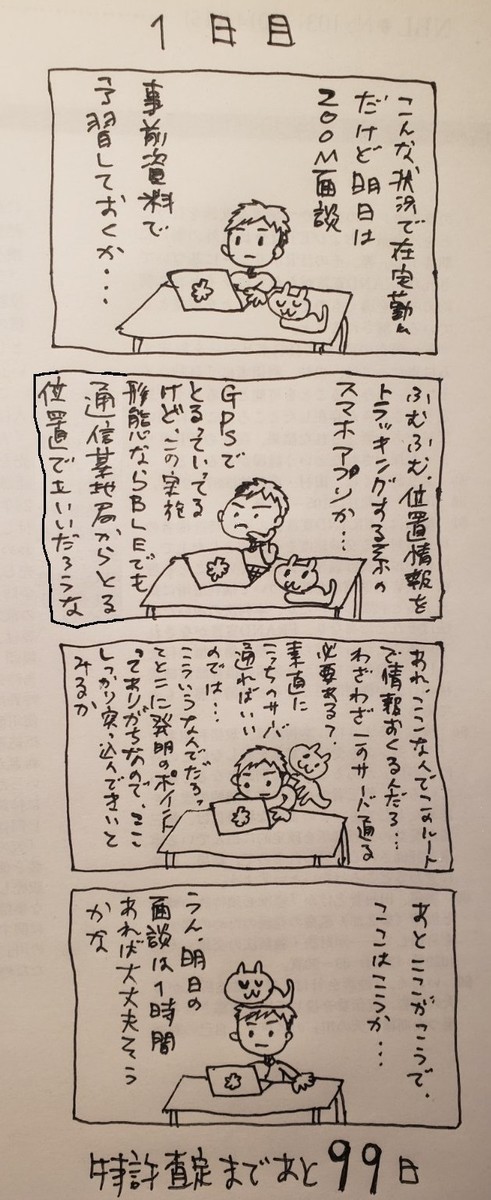 1日目
こんな状況で在宅勤務
だけど明日は
ZOOM面談
事前資料で
予習しておくか・・・
ふむふむ、位置情報を
トラッキングする系の
スマホアプリか・・・
GPSで
とるっていってる
けど、この実施
形態ならBLEでも
通信基地局からとる
位置でもいいだろうな
あれ、ここなんでこのルート
で情報おくるんだろ・・・
わざわざこのサーバ通る
必要ある？
素直に
こっちのサーバ
通ればいい
のでは・・・
こういうなんでだろ？
てとこに発明のポイント
ってありがちなので、ここ
しっかり突っ込んできいて
みるか
あとここがこうで、
ここはこうか・・・
うん、明日の
面談は1時間
あれば大丈夫そう
かな
特許査定まであと99日